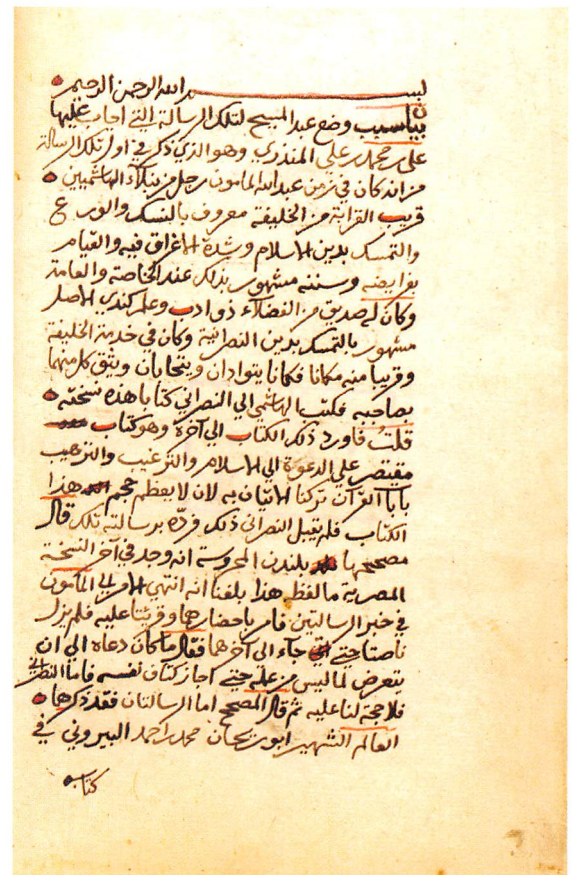 بسم الله الرحمن الرحيم
بيان سبب وضع عبد المسيح لتلك الرسالة التي اجاب عليها
على بن محمد بن علي المنذري وهو الذي ذكر في اول تلك الرسالة
من انه كان في زمن عبد الله المامون رجل من نبلاء الهاشميين
قريب القرابة من الخليفة معروف بالنسك والورع
والتمسك بدين الاسلام وشدة الاغراق فيه والقيام
بفرايضه وسننه مشهور بذلك عند الخاصة والعامة
وكان له صديق من الفضلاء ذو ادب وعلم كندي الاصل
مشهور بالتمسك بدين النصرانية وكان في خدمة الخليفة
وقريبا منه مكانا فكانا يتوادان ويتحابان ويثق كل منهما
بصاحبه فكتب الهاشمي الى النصراني كتابا هذه نسخته
قلت فاورد ذلك الكتاب الى آخره وهو كتاب
مقتصر على الدعوة الى الاسلام والترغيب والترهيب
بآيات القرآن تركنا الاتيان به لان لا يعظم حجم هذا
الكتاب فلم يقبل النصراني ذلك فرده برسالته تلك قال
مصححها بلندن المحروسة انه وجد في آخر النسخة
المصرية ما لفظه هذا بلغنا انه انتهى الامر الى المامون
في خبر الرسالتين فامر باحضارهما وقرئتا عليه فلم يزل
ناصتا حتى جآء الى آخرهما فقال ما كان دعاه الى ان
يتعرض لما ليس من عمله حتى اجاز كتاف نفسه فاما النصراني
فلا حجة لنا عليه ثم قال المصحح اما الرسالتان فقد ذكرهما
العالم الشهير ابو ريحان محمد بن احمد البيروني في
كتابه